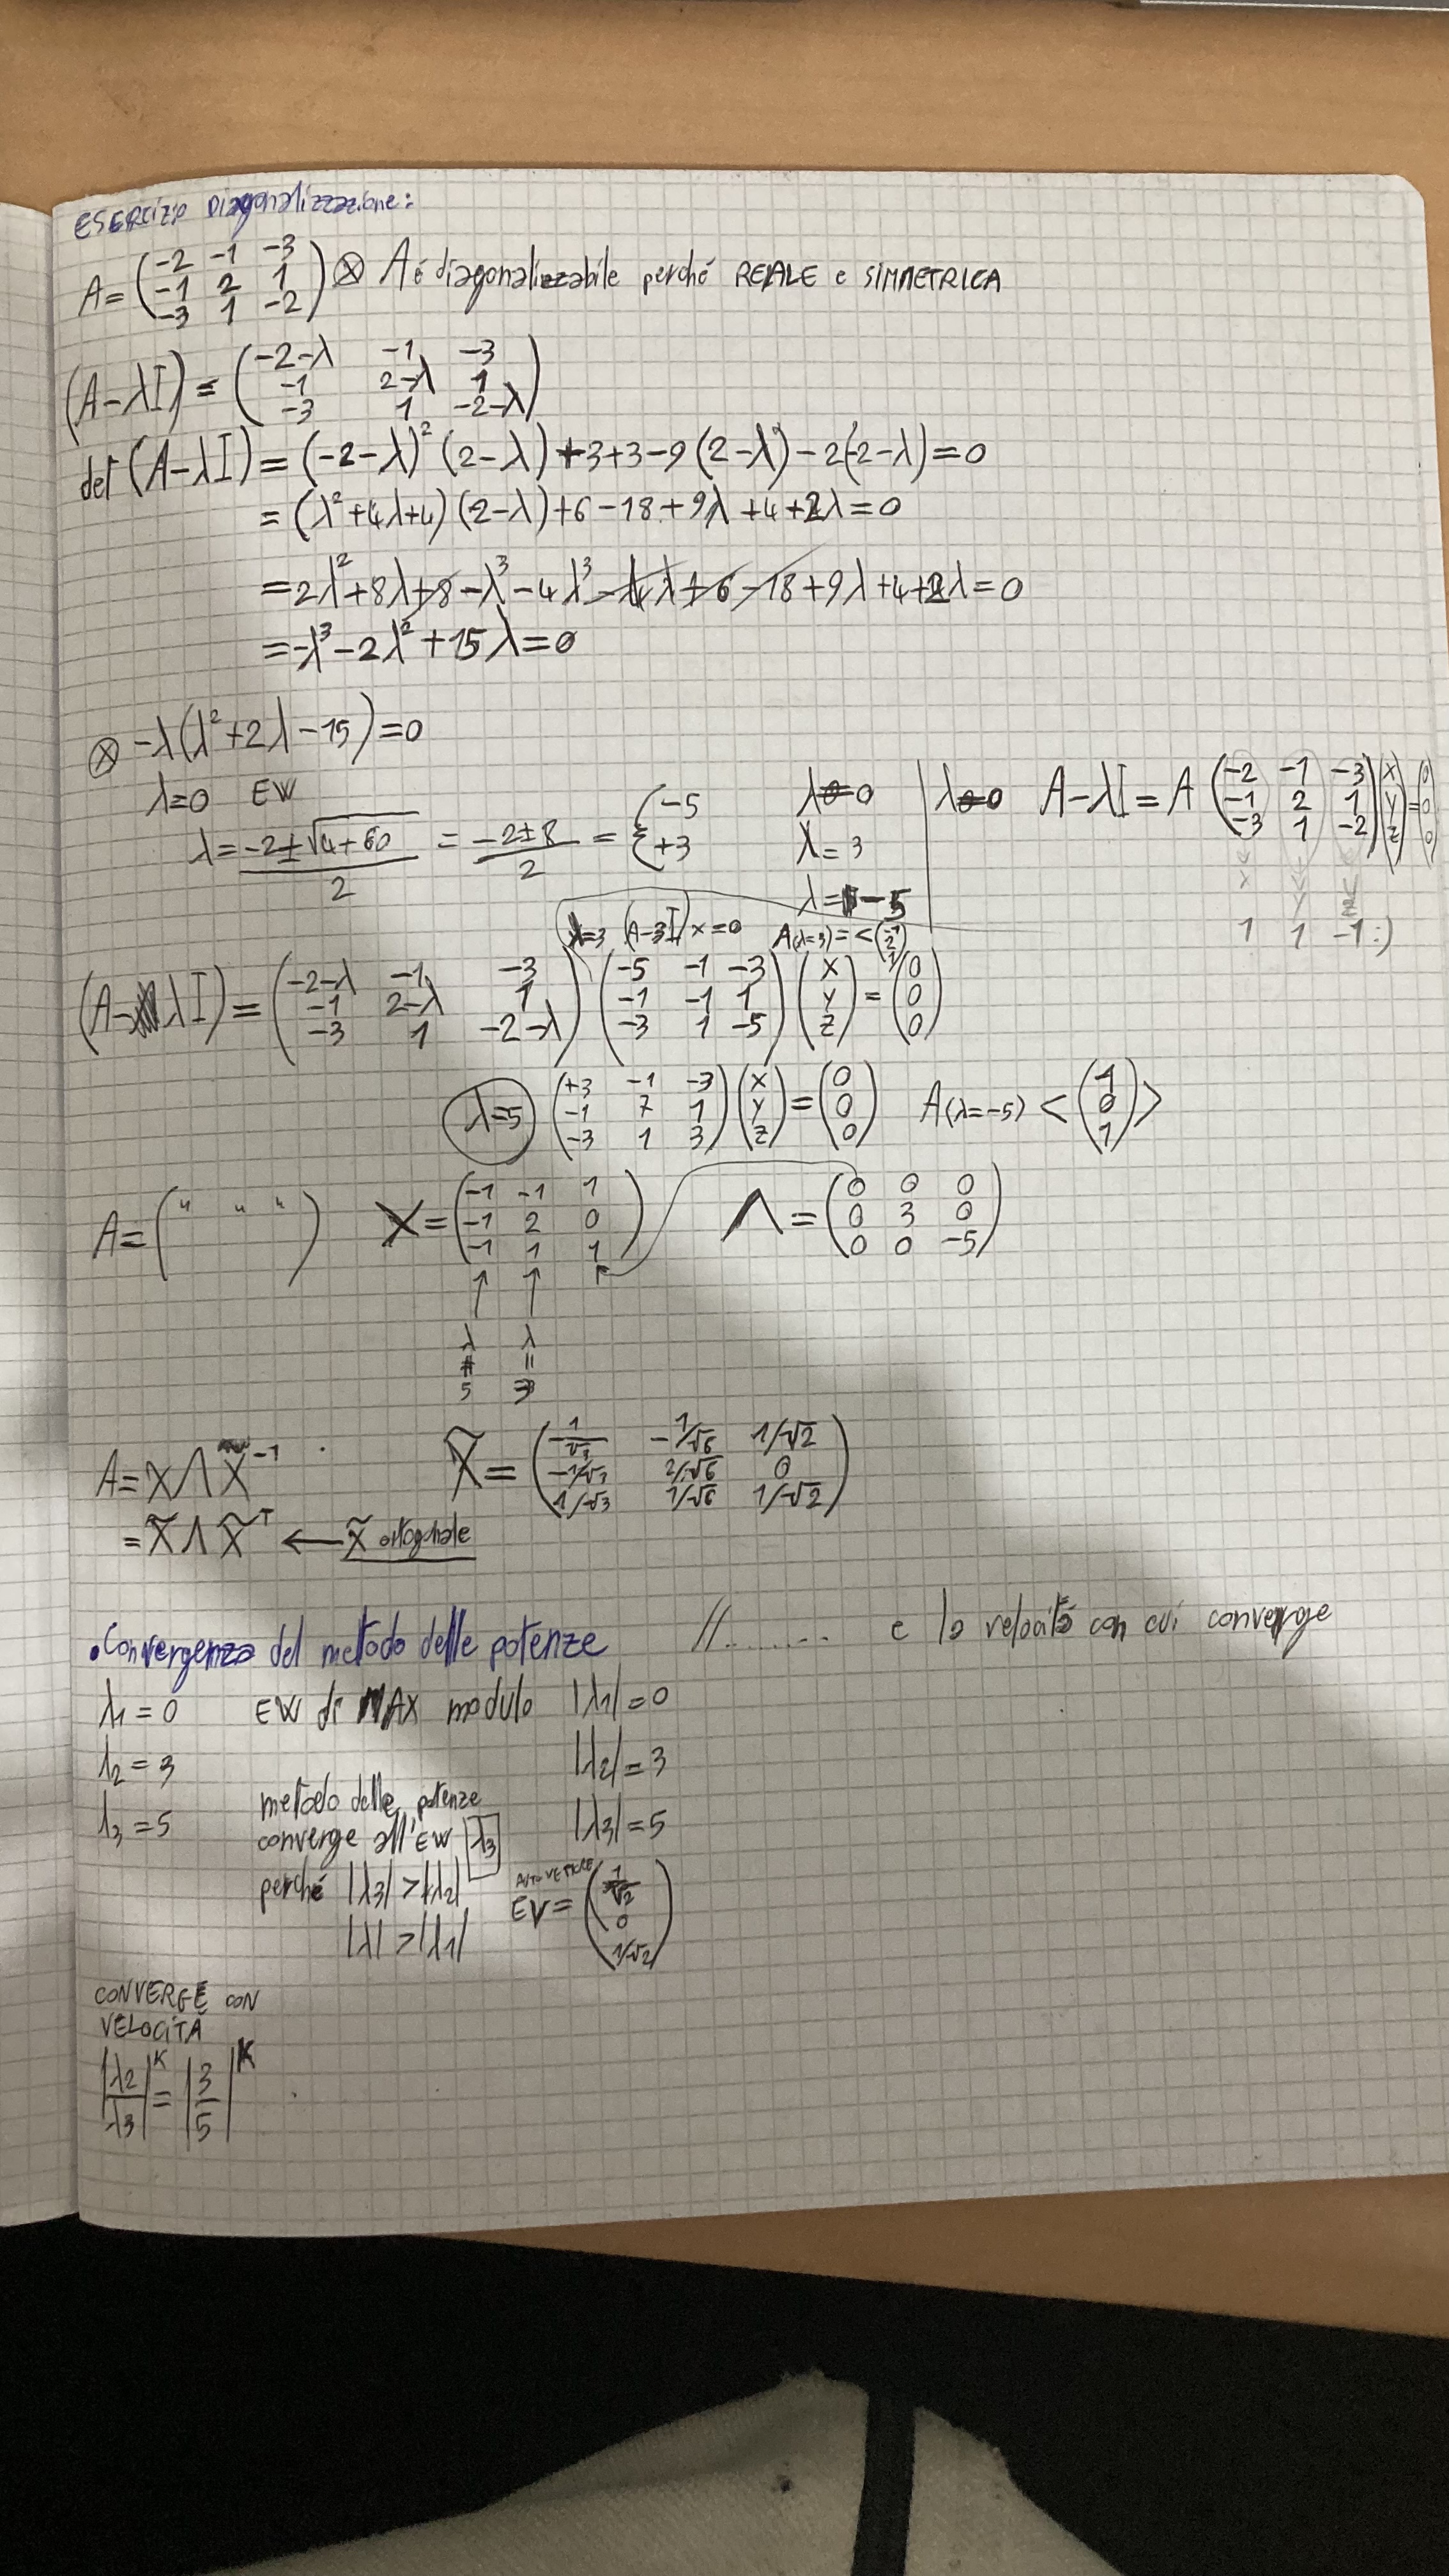 ESERCIZIO Diagonalizzazione:
A = (-2 -1 -3; -1 2 1; -3 1 -2) ⊗ A é diagonalizzabile perché REALE e SIMMETRICA
(A-λI) = (-2-λ -1 -3; -1 2-λ 1; -3 1 -2-λ)
det (A-λI) = (-2-λ)² (2-λ) +3+3-9 (2-λ) -2(-2-λ) = 0
= (λ²+4λ+4) (2-λ) +6-18+9λ+4+2λ = 0
= 2λ²+8λ+8-λ³-4λ³-4λ+6-18+9λ+4+2λ = 0
= -λ³-2λ²+15λ = 0
⊗ -λ(λ²+2λ-15) = 0
λ=0 EW
λ = -2±√4+60 / 2 = -2±8 / 2 = { -5 +3
λ=0
λ=3
λ=-5
λ=0 A-λI = A (-2 -1 -3; -1 2 1; -3 1 -2) (x y z) = (0 0 0)
1 1 -1 :)
λ=3 (A-3I) x=0 A(λ=3) = <(-1 2 1)
(A-λI) = (-2-λ -1 -3; -1 2-λ 1; -3 1 -2-λ) (-5 -1 -3; -1 -1 1; -3 1 -5) (x y z) = (0 0 0)
λ=5 (+3 -1 -3; -1 7 1; -3 1 3) (x y z) = (0 0 0) A(λ=-5) <(1 0 1)>
A = (" " ") X = (-1 -1 1; -1 2 0; -1 1 1) Λ = (0 0 0; 0 3 0; 0 0 -5)
↑ ↑
λ λ
= =
5 3
A = XΛX⁻¹ X̃ = (1/√3 -1/√6 1/√2; -1/√3 2/√6 0; 1/√3 1/√6 1/√2)
= X̃ΛX̃ᵀ ← X̃ ortogonale
• Convergenza del metodo delle potenze // ........ e la velocità con cui converge
λ1 = 0 EW di MAX modulo |λ1| = 0
λ2 = 3 |λ2| = 3
λ3 = 5 |λ3| = 5
metodo delle potenze
converge all'EW λ3
perché |λ3| > |λ2|
|λ| > |λ1|
AUTOVETTORE
EV = (1/√2 0 1/√2)
CONVERGE CON
VELOCITÀ
|λ2/λ3|ᴷ = |3/5|ᴷ